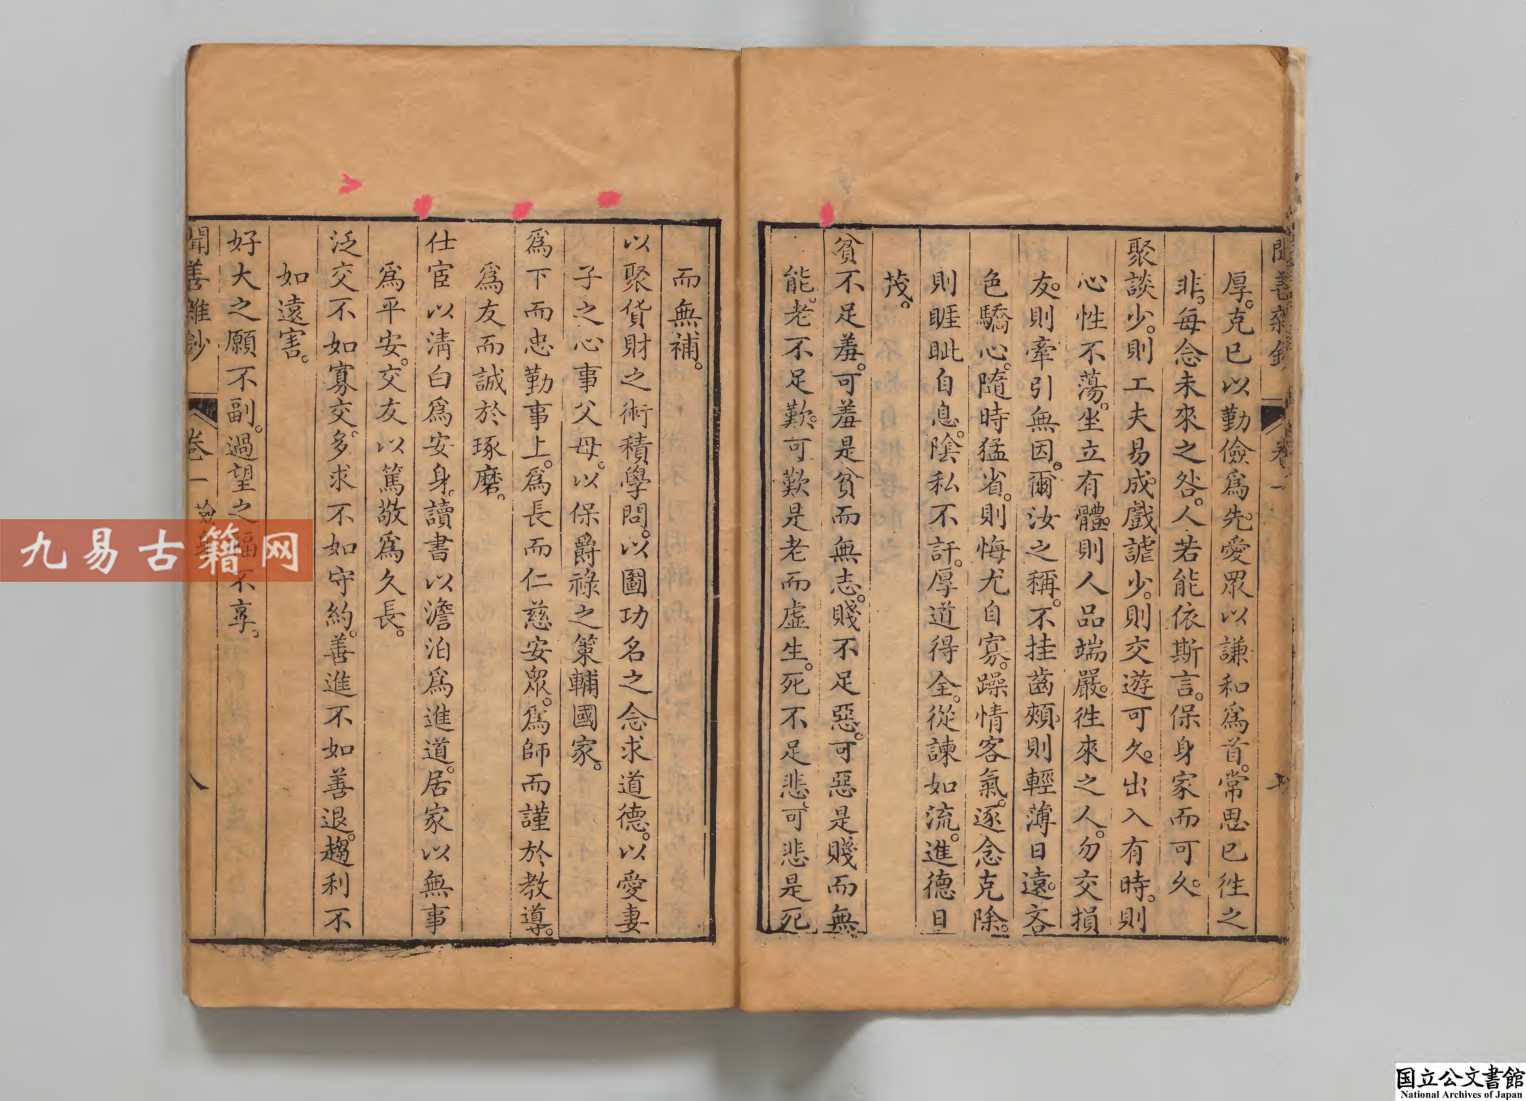 厚。克已以勤儉爲先。愛眾以謙和爲首。常思已徃之
非。每念未來之咎。人若能依斯言。保身家而可久。
聚談少。則工夫易成。戲謔少。則交遊可久。出入有時。則
心性不蕩。坐立有體。則人品端嚴。徃來之人。勿交損
友。則牽引無因。爾汝之稱。不挂齒頰。則輕薄日遠。吝
色驕心。隨時猛省。則悔尤自寡。躁情客氣。逐念克除。
則睚眦自息。陰私不訐。厚道得全。從諫如流。進德日
茂。
貧不足羞。可羞是貧而無志。賤不足惡。可惡是賤而無
能。老不足歎。可歎是老而虛生。死不足悲。可悲是死
而無補。
以聚貨財之術積學問。以圖功名之念求道德。以愛妻
子之心事父母。以保爵祿之策輔國家。
爲下而忠勤事上。爲長而仁慈安眾。爲師而謹於教導。
爲友而誠於琢磨。
仕宦以淸白爲安身。讀書以澹泊爲進道。居家以無事
爲平安。交友以篤敬爲久長。
泛交不如寡交。多求不如守約。善進不如善退。趨利不
如遠害。
好大之願不副。過望之福不享。
聞善雜鈔
卷一
八
九易古籍网
国立公文書館
National Archives of Japan